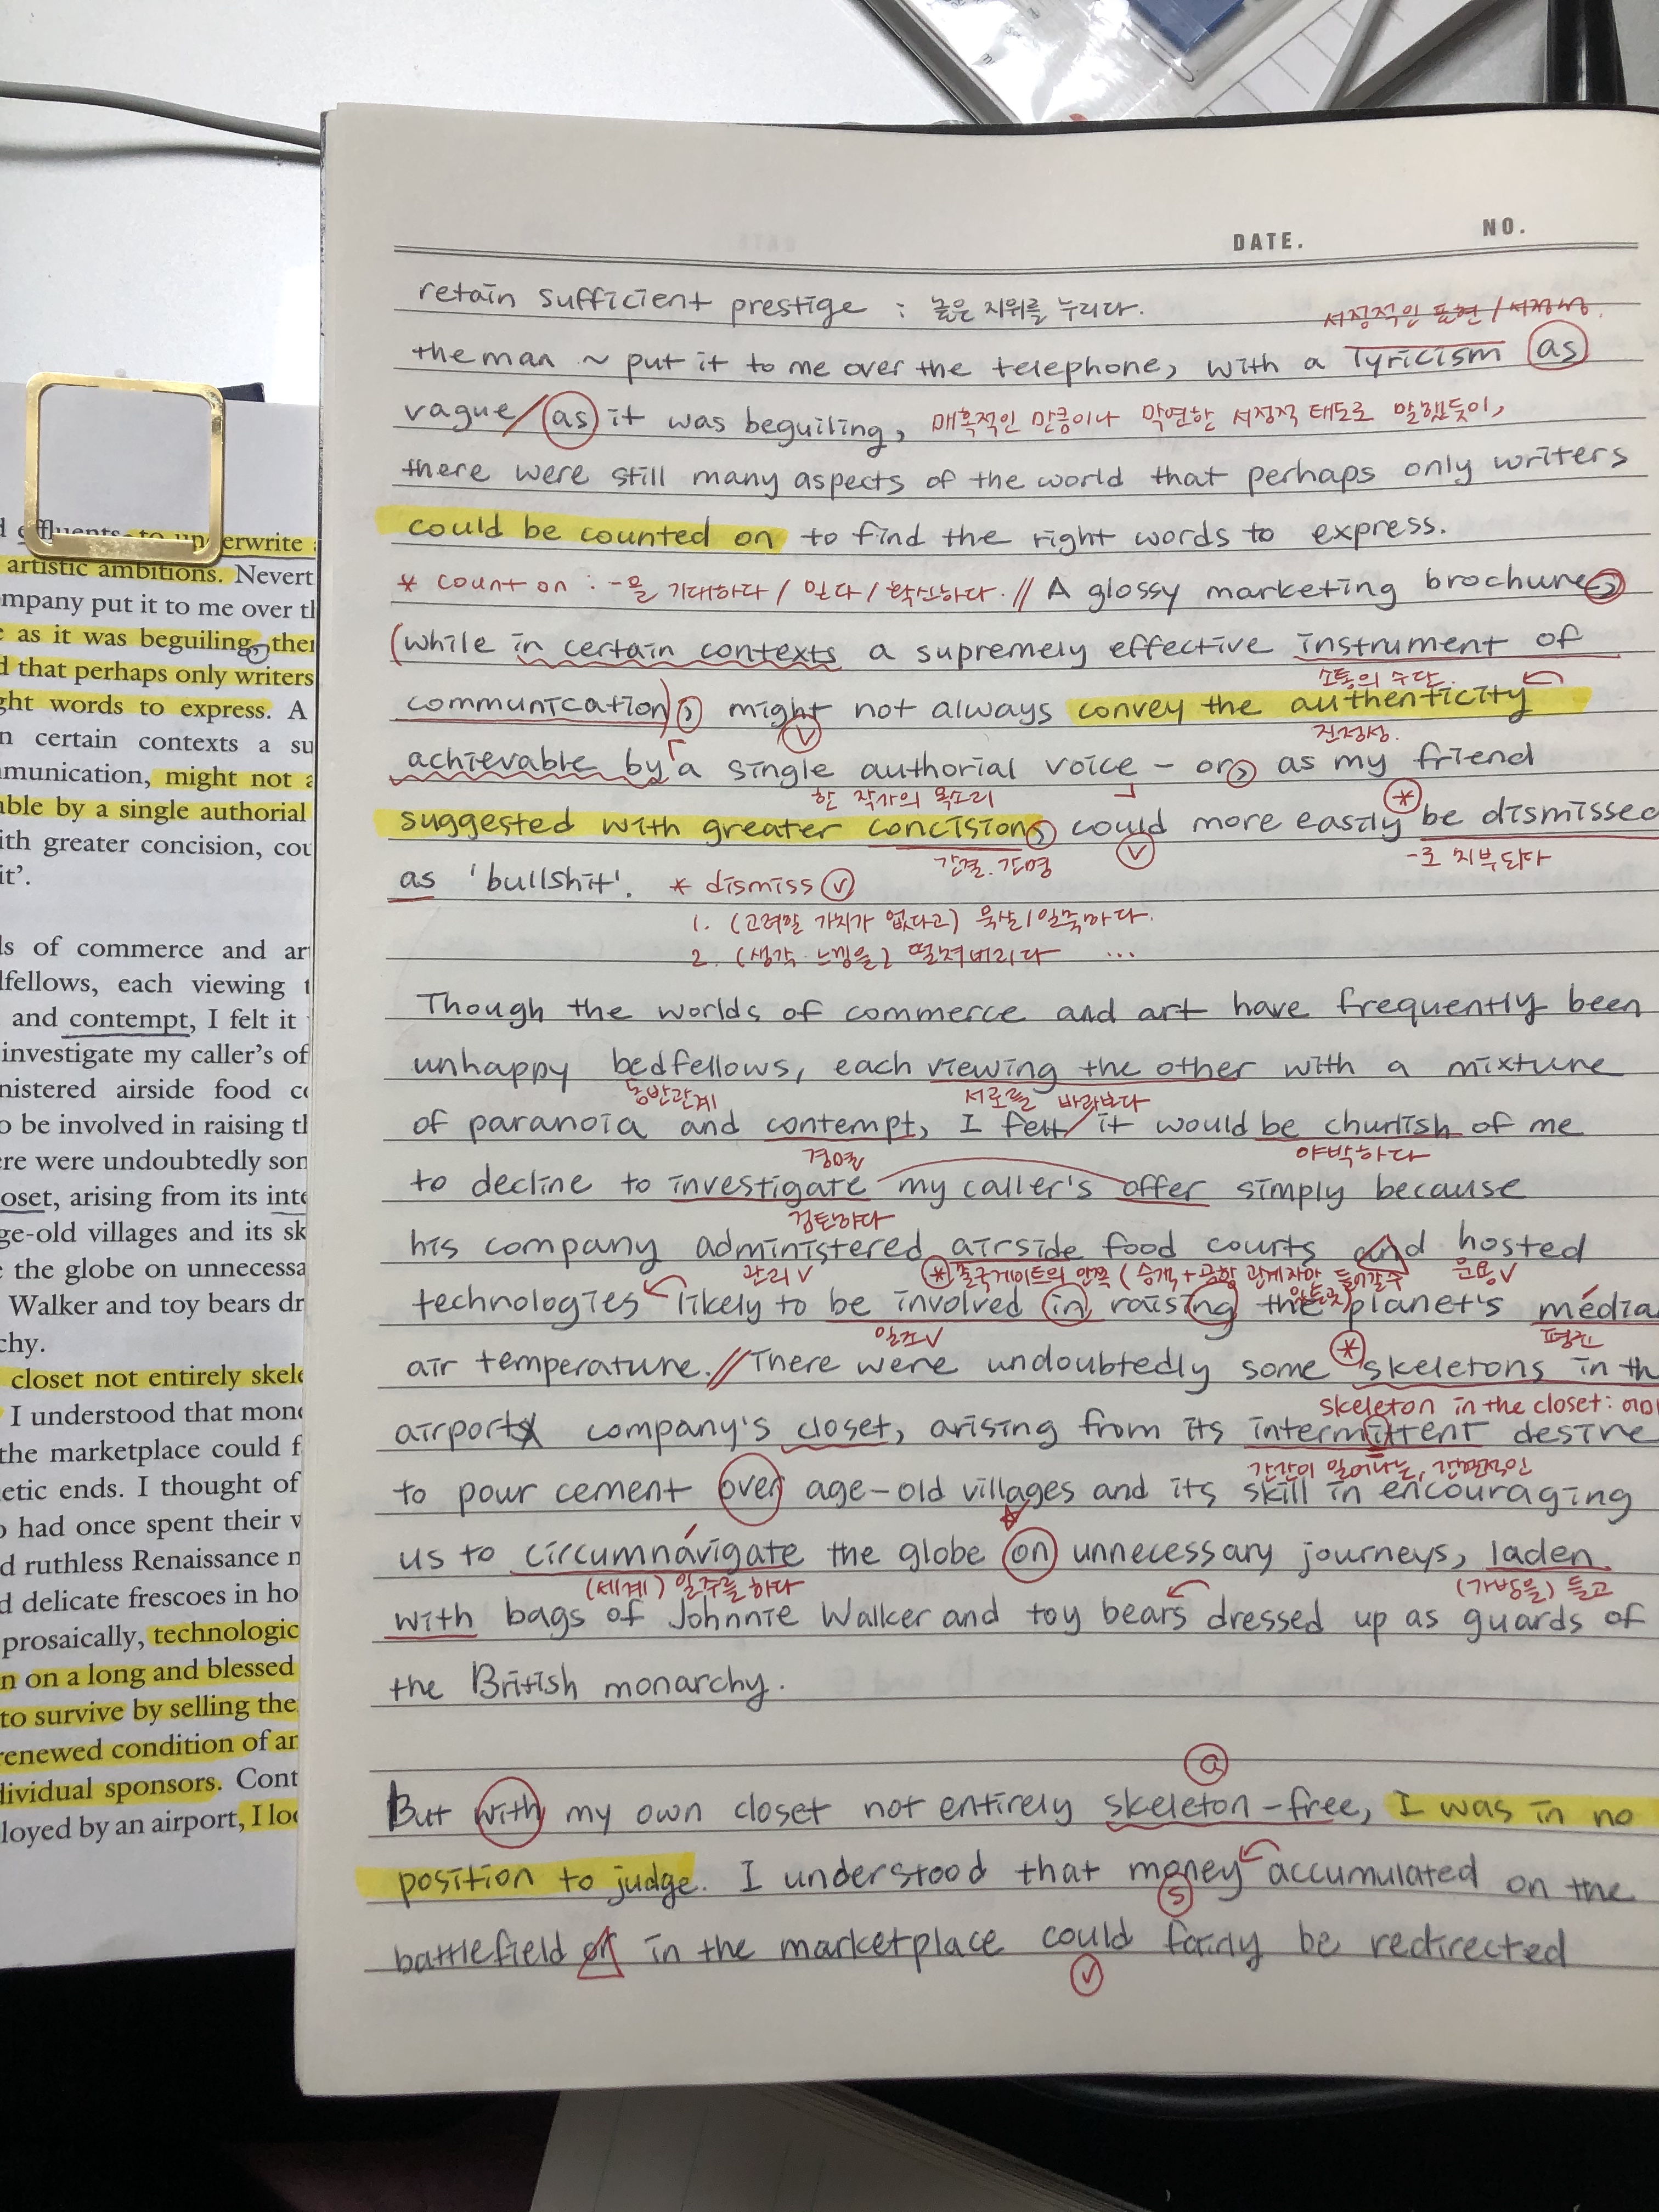 DATE. NO.
retain sufficient prestige : 높은 지위를 누리다.
서정적인 표현 / 서정성.
the man ~ put it to me over the telephone, with a lyricism as
vague / as it was beguiling, 매혹적인 만큼이나 막연한 서정적 태도로 말했듯이,
there were still many aspects of the world that perhaps only writers
could be counted on to find the right words to express.
* count on : -을 기대하다 / 믿다 / 확신하다. // A glossy marketing brochure,
(while in certain contexts a supremely effective instrument of
소통의 수단.
communication), might not always convey the authenticity
v 진정성.
achievable by a single authorial voice – or, as my friend
한 작가의 목소리 *
suggested with greater concision, could more easily be dismissed
간결. 간명 v -로 치부되다
as 'bullshit'. * dismiss v
1. (고려할 가치가 없다고) 묵살/일축하다.
2. (생각·느낌을) 떨쳐버리다 ...
Though the worlds of commerce and art have frequently been
unhappy bedfellows, each viewing the other with a mixture
동반관계 서로를 바라보다
of paranoia and contempt, I felt / it would be churlish of me
경멸 야박하다
to decline to investigate my caller's offer simply because
검토하다
his company administered airside food courts and hosted
관리 v * 출국게이트의 안쪽 (승객 + 공항 관계자만 들어갈수 운용 v
technologies likely to be involved in raising the planet's media
일조 v * 평균
air temperature. // There were undoubtedly some skeletons in th
skeleton in the closet :
airport company's closet, arising from its intermittent desire
간간이 일어나는, 간헐적인
to pour cement over age-old villages and its skill in encouraging
us to circumnavigate the globe on unnecessary journeys, laden
(세계) 일주를 하다 (가방을) 들고
with bags of Johnnie Walker and toy bears dressed up as guards of
the British monarchy.
a
But with my own closet not entirely skeleton-free, I was in no
position to judge. I understood that money accumulated on the
s
battlefield or in the marketplace could fairly be redirected
v
effluents to underwrite
artistic ambitions. Nevert
mpany put it to me over th
as it was beguiling, ther
d that perhaps only writers
ght words to express. A
n certain contexts a su
mmunication, might not a
able by a single authorial
ith greater concision, cou
it'.
ds of commerce and ar
lfellows, each viewing t
and contempt, I felt it
investigate my caller's of
nistered airside food co
o be involved in raising th
ere were undoubtedly son
oset, arising from its inte
ge-old villages and its sk
the globe on unnecessa
Walker and toy bears dr
chy.
closet not entirely skele
I understood that mone
the marketplace could f
etic ends. I thought of
o had once spent their v
d ruthless Renaissance n
d delicate frescoes in ho
prosaically, technologic
n on a long and blessed
to survive by selling the
renewed condition of ar
dividual sponsors. Cont
loyed by an airport, I loo